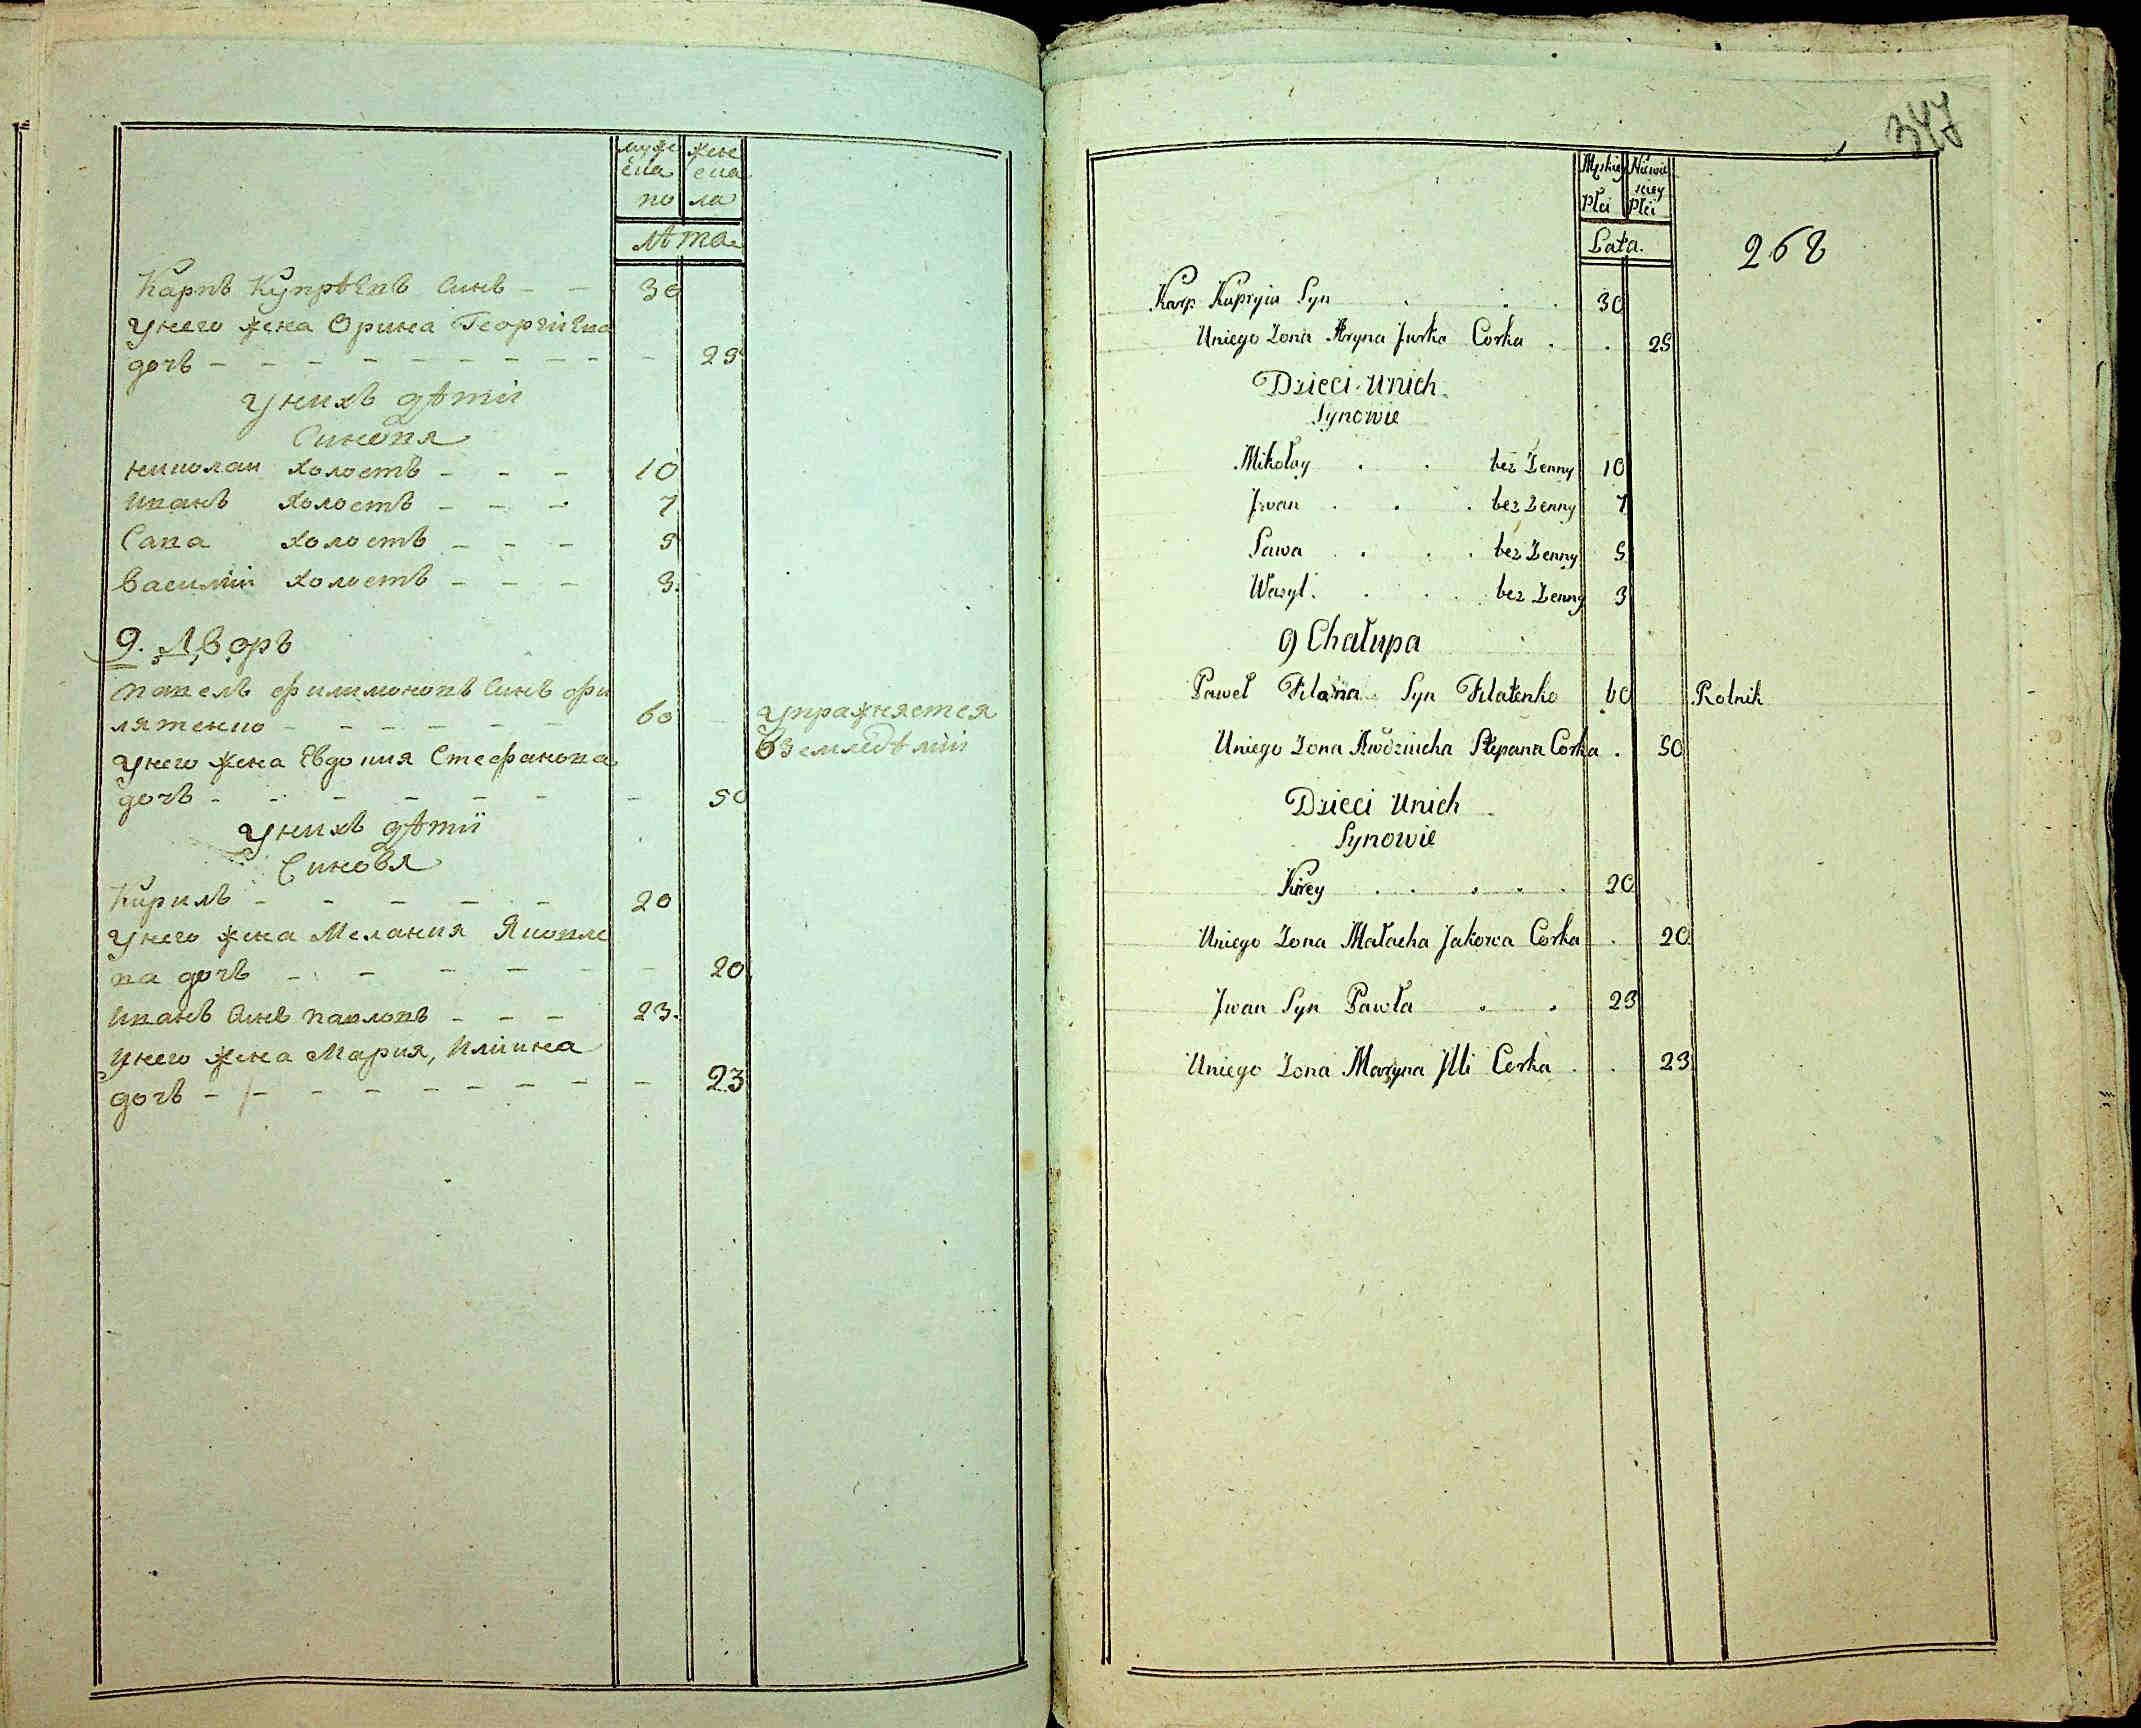 муже жен
ска ска
по ла
лѣта
Карпъ Купрѣевъ синъ - - 30
унего жена Орина Георгіева
дочь - - - - - - - - - - 25
унихъ дѣти
Синовя
николаи холостъ - - - 10
иванъ холостъ - - - 7
Сава холостъ - - - 5
василіи холостъ - - - 3.
9. Дворъ
павелъ филимоновъ синъ фи
лятенко - - - - - - 60 упражняется
унего жена Евдокия Стефанова вземледѣліи
дочъ - - - - - - - 50
унихъ дѣтіи
Синовя
Кирилъ - - - - - 20
унего жена Мелания Яковле
ва дочъ - - - - - - 20
иванъ синъ павловъ - - - 23.
унего жена Мария, илиина
дочъ - - - - - - - - 23
347
Męskiey Niewie
skiey
Płci Płci
Lata.
268
Karp Kupryia Syn . . . 30
Uniego Zona Aryna Jurka Corka . . 25
Dzieci Unich
Synowie
Mikołay . . bez Zenny 10
Jwan . . . bez Zenny 7
Sawa . . . bez Zenny 5
Wasyl . . . bez Zenny 3
9 Chałupa
Paweł Filona Syn Filatenko 60 Rolnik
Uniego Zona Awdziucha Stepana Corka . 50
Dzieci Unich
Synowie
Kirey . . . . . 20
Uniego Zona Małacha Jakowa Corka . 20
Jwan Syn Pawła . . 23
Uniego Zona Maryna Jlli Corka . . 23